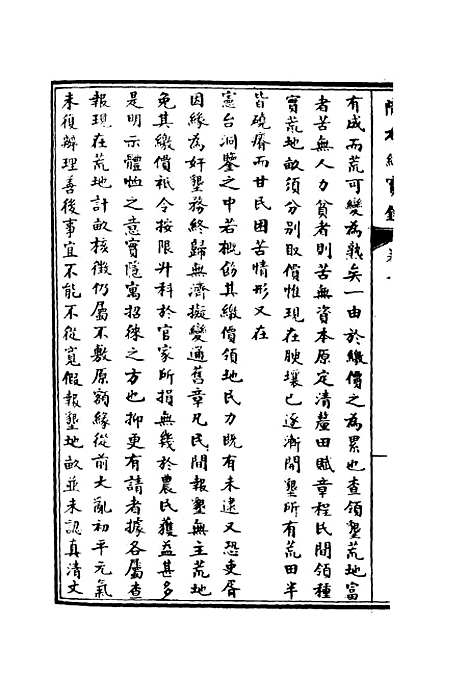 有成而荒可變為熟矣一由於繳價之為累也查領墾荒地富
者苦無人力貧者則苦無資本原定清釐田賦章程民間領種
實荒地畝須分別取價惟現在腴壤已逐漸開墾所有荒田半
皆磽瘠而甘民困苦情形又在
憲台洞鑒之中若概飭其繳價領地民力既有未逮又恐吏胥
因緣為奸墾務終歸無濟擬變通舊章凡民間報墾無主荒地
免其繳價祇令按限升科於官家所損無幾於農民獲益甚多
是明示體恤之意實隱寓招徠之方也抑更有請者據各屬查
報現在荒地計畝核徵仍屬不敷原額緣從前大亂初平元氣
未復辦理善後事宜不能不從寬假報墾地畝並未認真清丈